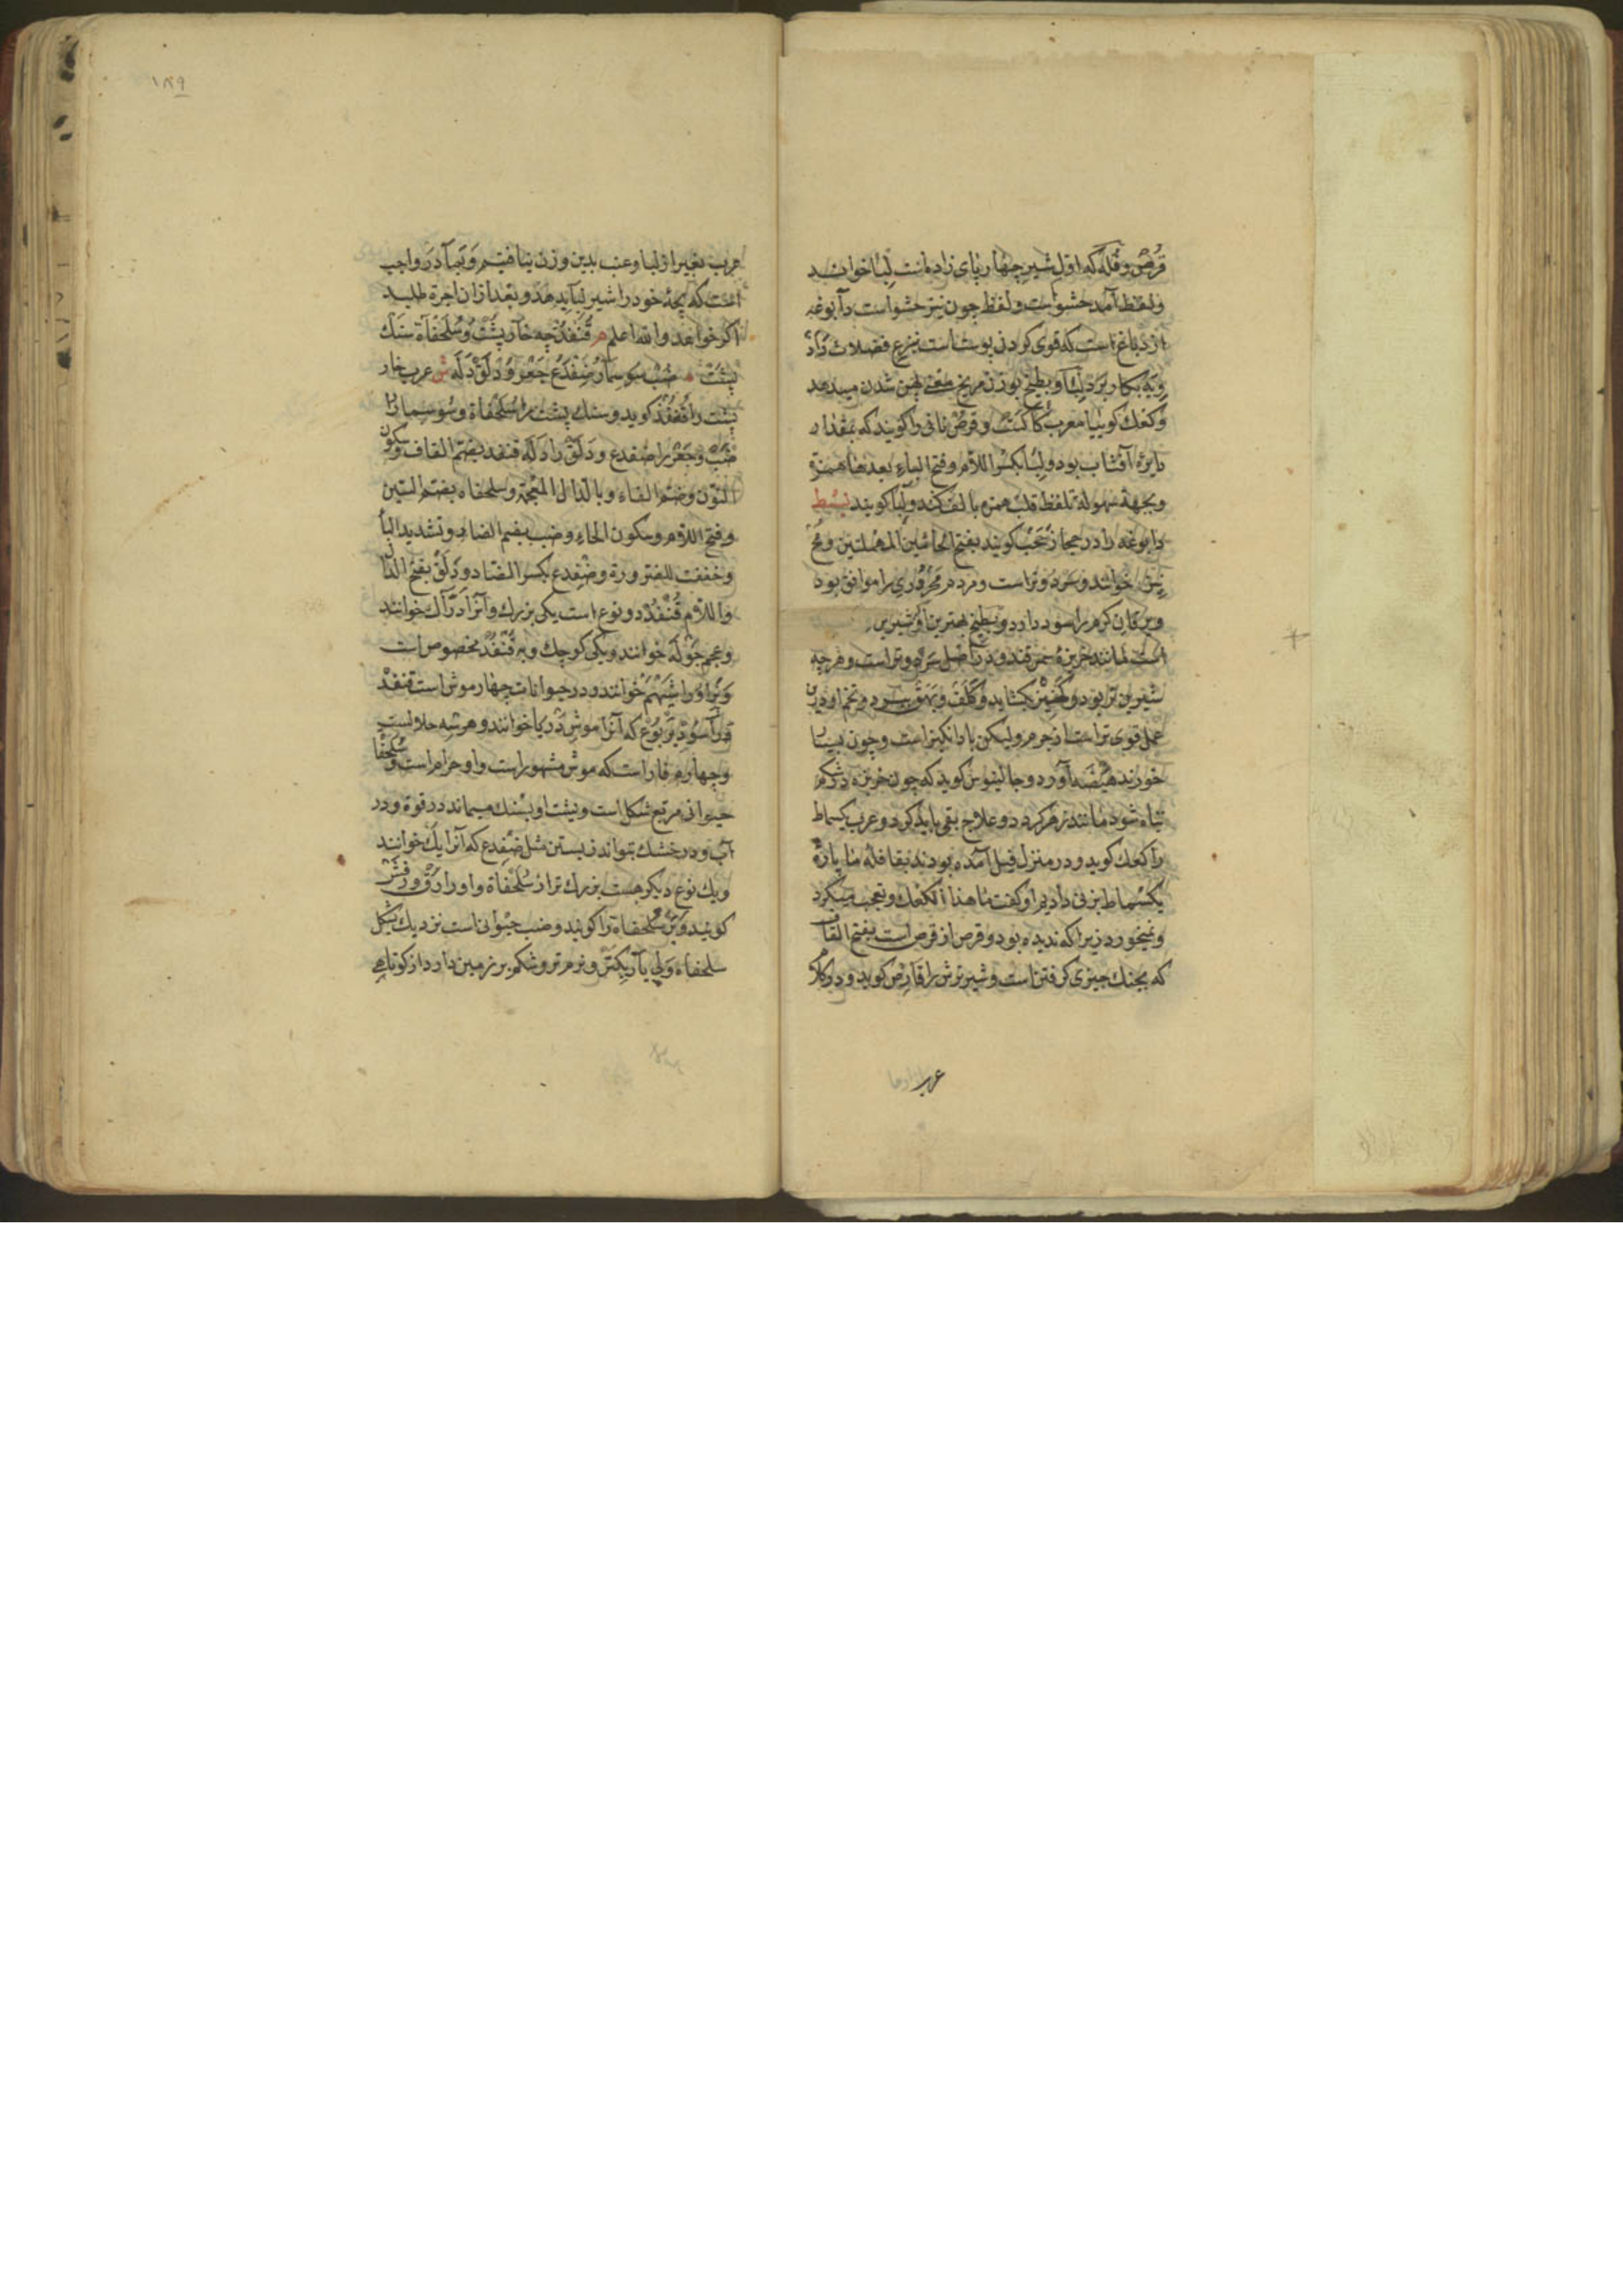 قُرص و فُلّه که اول شیر چهارپای زاده است لِبَا خوانند
ولفظ آمد حشو است ولفظ چون نیز حشو است دابوغه
از دباغ است که قوی کردن پوست است بنزع فضلات
کار برد دلبا وبطیخ بوزن مریخ معنی پهن شدن میدهد
وکعک کوبیا معرب کاکست وقرص نانی را کویند که بمقدار
دایرۀ آفتاب بود ولِبَا بکسر اللام وفتح الباء بعدها همزة
وبجهة سهولة تلفظ قلب همزه بالف کند ولبا کویند
دابوغه را در حجاز حَبحَب کویند بفتح الحائین المهملتین
نیز خوانند و سرد و تر است ومردم محروری را موافق بود
ویرقان کرم را سود دارد وبطیخ بهترین او شیرین
است مانند خربزۀ سمرقند ودر اصل سرد و تر است وهرچه
شیرین تر بود وکشتن بکشاید وکلف وبهق ببرد وتخم او درین
عمل قوی تر است از جرم ولیکن باد انکیز است وچون بسیار
خورند هیضه آورد وجالینوس کوید که چون خربزه در شکم
تباه شود مانند زهر کردد وعلاج بقی باید کرد وعرب یکسماط
را کعک کوید ودر منزل فید آمده بودند بقافله ما پارۀ
یکسماط بزنی دادیم او کفت ما هذا الکعک وتعجب میکرد
ونمیخورد زیرا که ندیده بود وقرص از قرص است بفتح القاف
که بچنک چیزی کرفتن است وشیر ترش را قارص کوید ودر کلام
عرب
۱۸۹
عرب بغیر از لبا وعنب بدین وزن نیافتیم وبر مادر واجب
است که بچۀ خود را شیر لبا بدهد وبعد از آن اجرة طلبد
اکر خواهد والله اعلم م قُنفُذ چه خارپشت وسُلَحفاة سنک
پشت ضب سوسمار ضفدع جَغز و دَلَق دَلَه ش عرب خار
پشت را قنفذ کوید وسنک پشت را سلحفاة وسوسمار را
ضب وجغز را ضفدع ودلق را دله قنفذ بضم القاف وسکون
النون وضم الفاء وبالذال المعجمة وسلحفاه بضم السین
وفتح اللام وسکون الحاء وضب بضم الضاد وتشدید البا
وخففت للضرورة وضفدع بکسر الضاد ودلق بفتح الدال
واللام قنفذ دو نوع است یکی بزرک وآنرا دُرّاک خوانند
وعجم جوله خوانند ویکی کوچک وبه قنفذ مخصوص است
ونر او را شیهم خوانند ودر حیوانات چهار موش است قنفذ
ودر آسو ویربوع که آنرا موش دریا خوانند وهر سه حلالست
وچهارم فار است که موش مشهور است واو حرام است وسلحفا
حیوانی مربع شکل است وپشت او بسنک میماند در قوة ودر
آب ودر خشک بتواند زیستن مثل ضفدع که آنرا بک خوانند
ویک نوع دیکر هست بزرک تر از سلحفاة واو را رق ورفش
کویند ونر سلحفاة را کویند وضب حیوانی است نزدیک بشکل
سلحفاه ولی باریکتر ونرم تر وشکم بر زمین دارد از کوتاهی